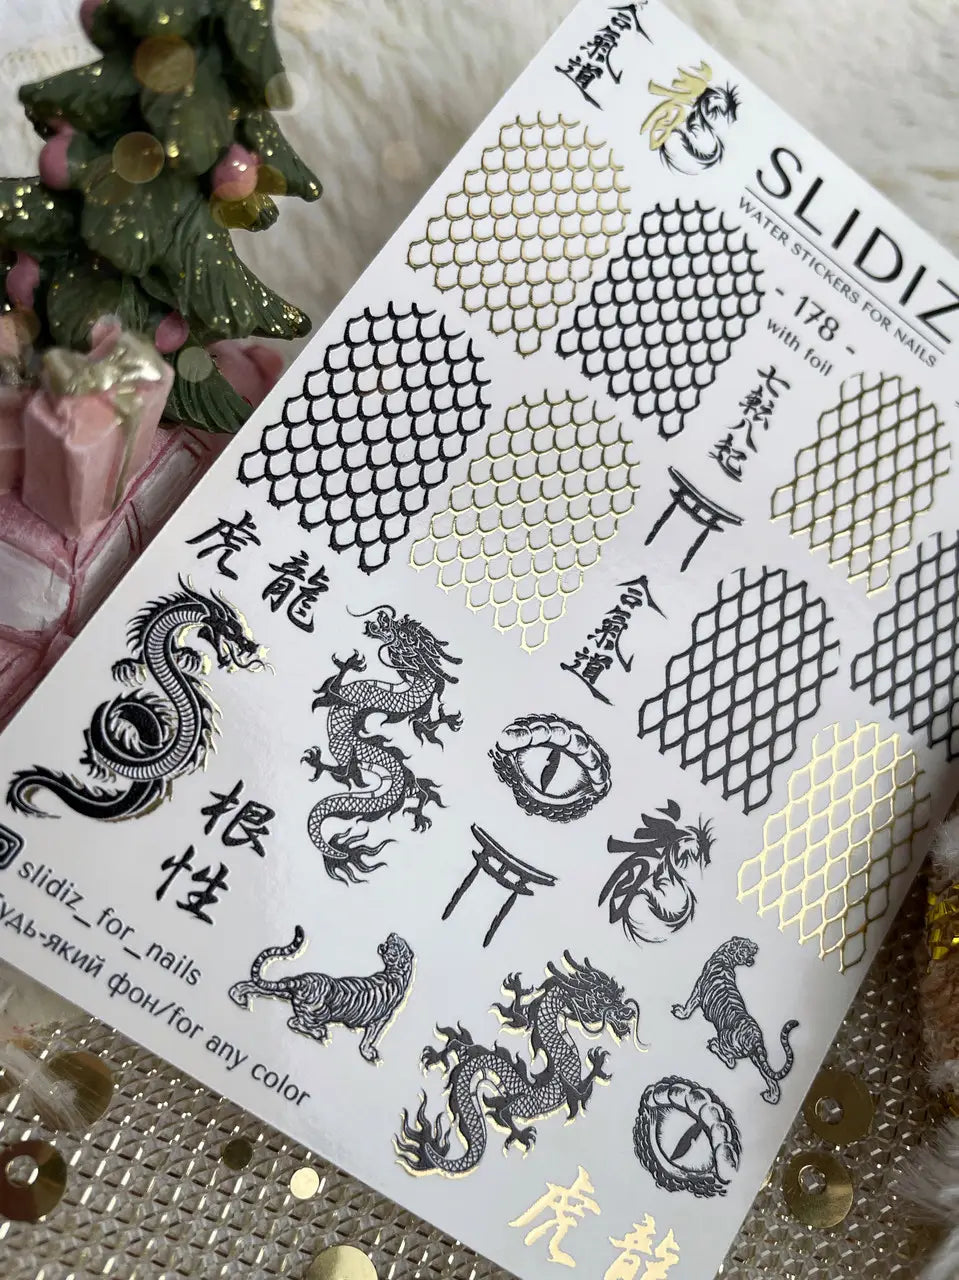 合氣道
龍
SLIDIZ
WATER STICKERS FOR NAILS
- 178 -
with foil
七転八起
虎
龍
合氣道
根性
龍
slidiz_for_nails
Будь-який фон/for any color
虎
龍